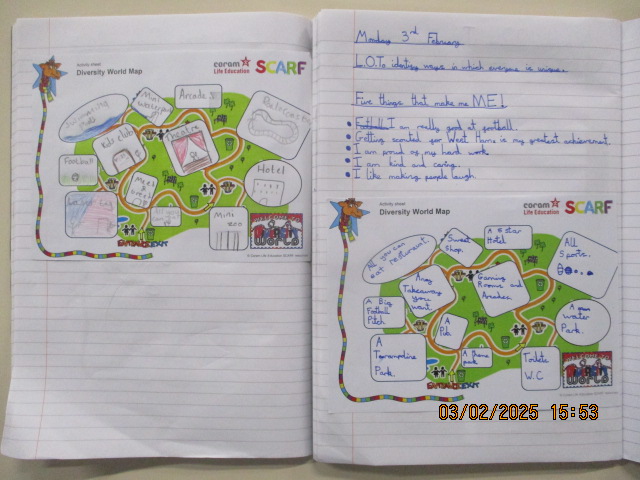 Activity sheet
Diversity World Map
coram
Life Education
SCARF
Mini
waterpark
Arcade
Theatre
Football
Hotel
Mini
zoo
ENTRANCE
EXIT
Monday 3rd February
L.O.To identify ways in which everyone is unique.
Five things that make me ME!
Football I am really good at football.
Getting scouted for West Ham is my greatest achievement.
I am proud of my hard work.
I am kind and caring.
I like making people laugh.
Activity sheet
Diversity World Map
coram
Life Education
SCARF
All you can
eat restaurant.
Sweet
Shop.
A 5 star
Hotel
All
Sports.
Any
Takeaway
you
want.
Gaming
Rooms and
Arcades.
A Big
Football
Pitch
A
Pub
A
Water
Park.
A
Trampoline
Park.
A phone
park
Toilets
W.C
ENTRANCE
EXIT
03/02/2025 15:53